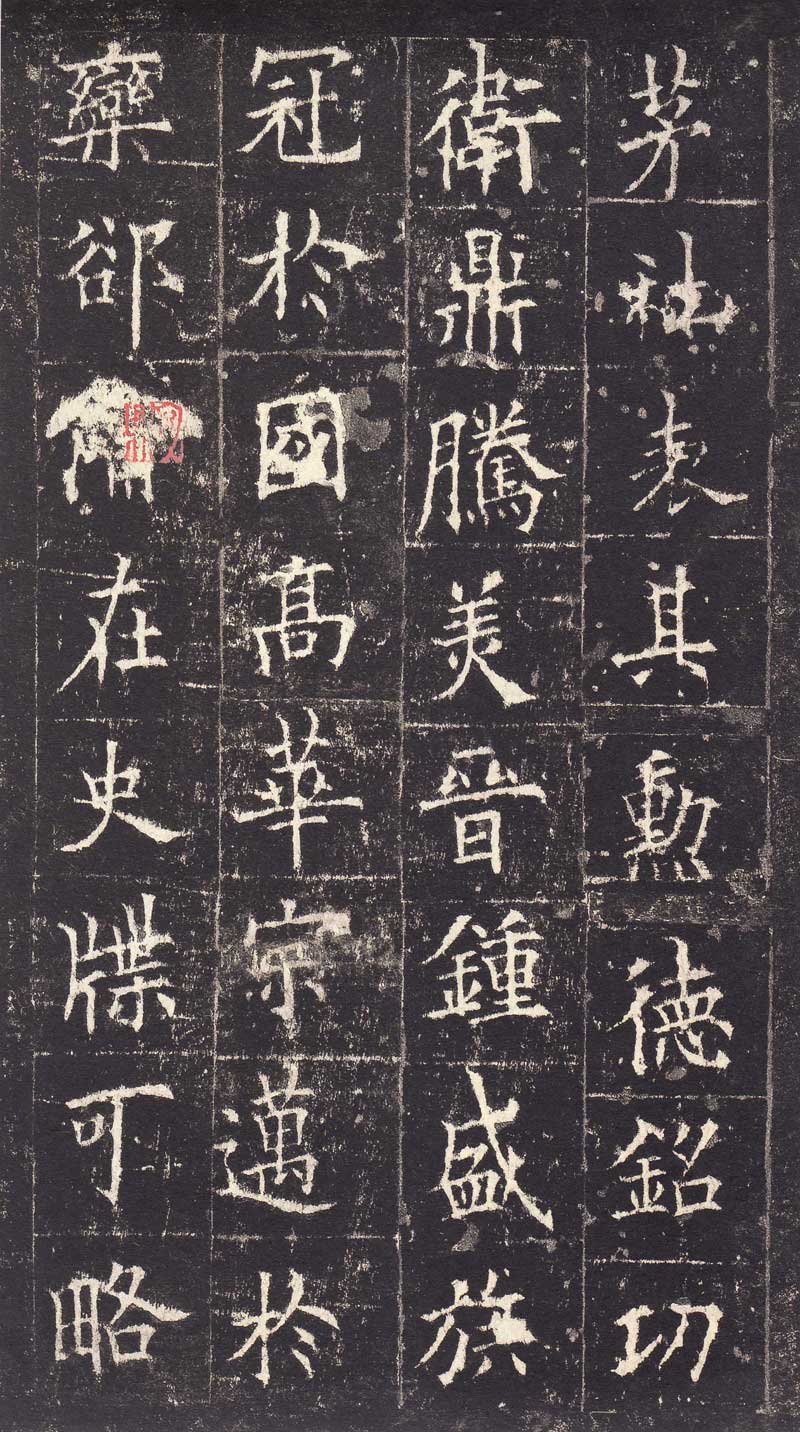 茅社表其勳德銘切
衛鼎騰美晉鍾盛族
冠於國高華宗邁於
欒郤在史牒可略